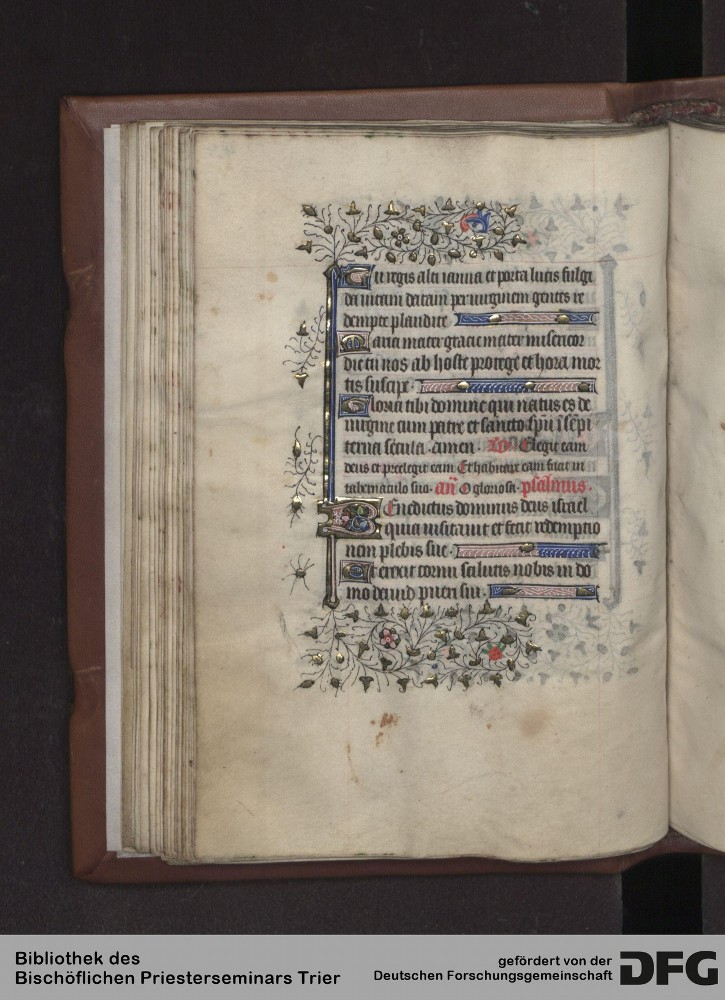 Tu regis alti ianua et porta lucis fulgi
da uitam datam per uirginem gentes re
dempte plaudite
Maria mater gratie mater misericor
die tu nos ab hoste protege et hora mor
tis suscipe.
Gloria tibi domine qui natus es de
uirgine cum patre et sancto spū ī sēpi
terna secula. amen. Elegit eam
deus et preelegit eam Et habitare eam facit in
tabernaculo suo. añ O gloriosa. psalmus.
Benedictus dominus deus israel
quia uisitauit et fecit redemptio
nem plebis sue.
Et erexit cornu salutis nobis in do
mo dauid pueri sui.
Bibliothek des
Bischöflichen Priesterseminars Trier
gefördert von der
Deutschen Forschungsgemeinschaft
DFG